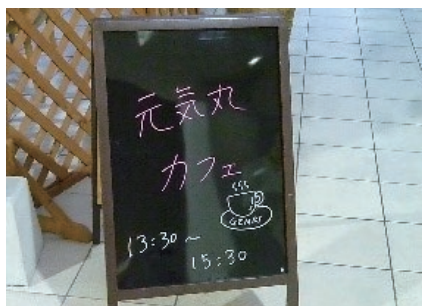 元気丸
カフェ
GENKI
13:30～
15:30